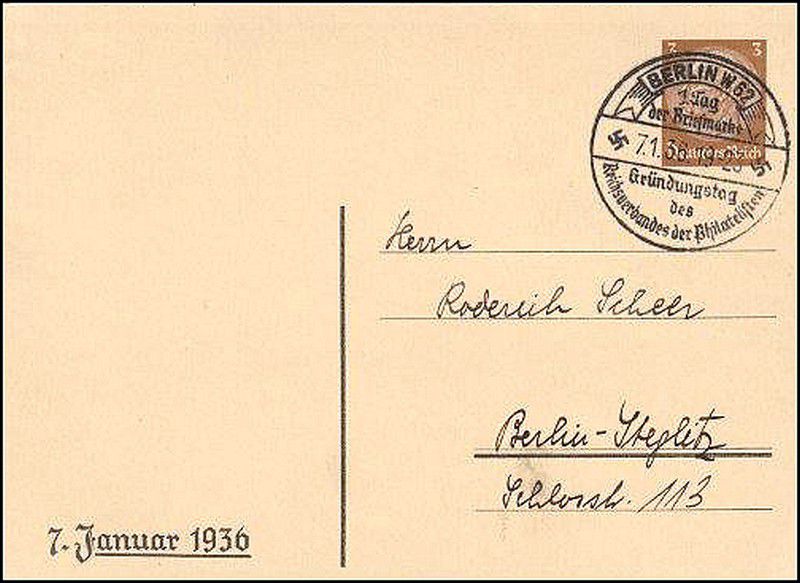 3 3
BERLIN W 62
1. Tag
der Briefmarke
7.1.36
Deutsches Reich
Gründungstag
des
Reichsverbandes der Philatelisten
Herrn
Rodereich Scheer
Berlin-Steglitz
Schlosstr. 113
7. Januar 1936